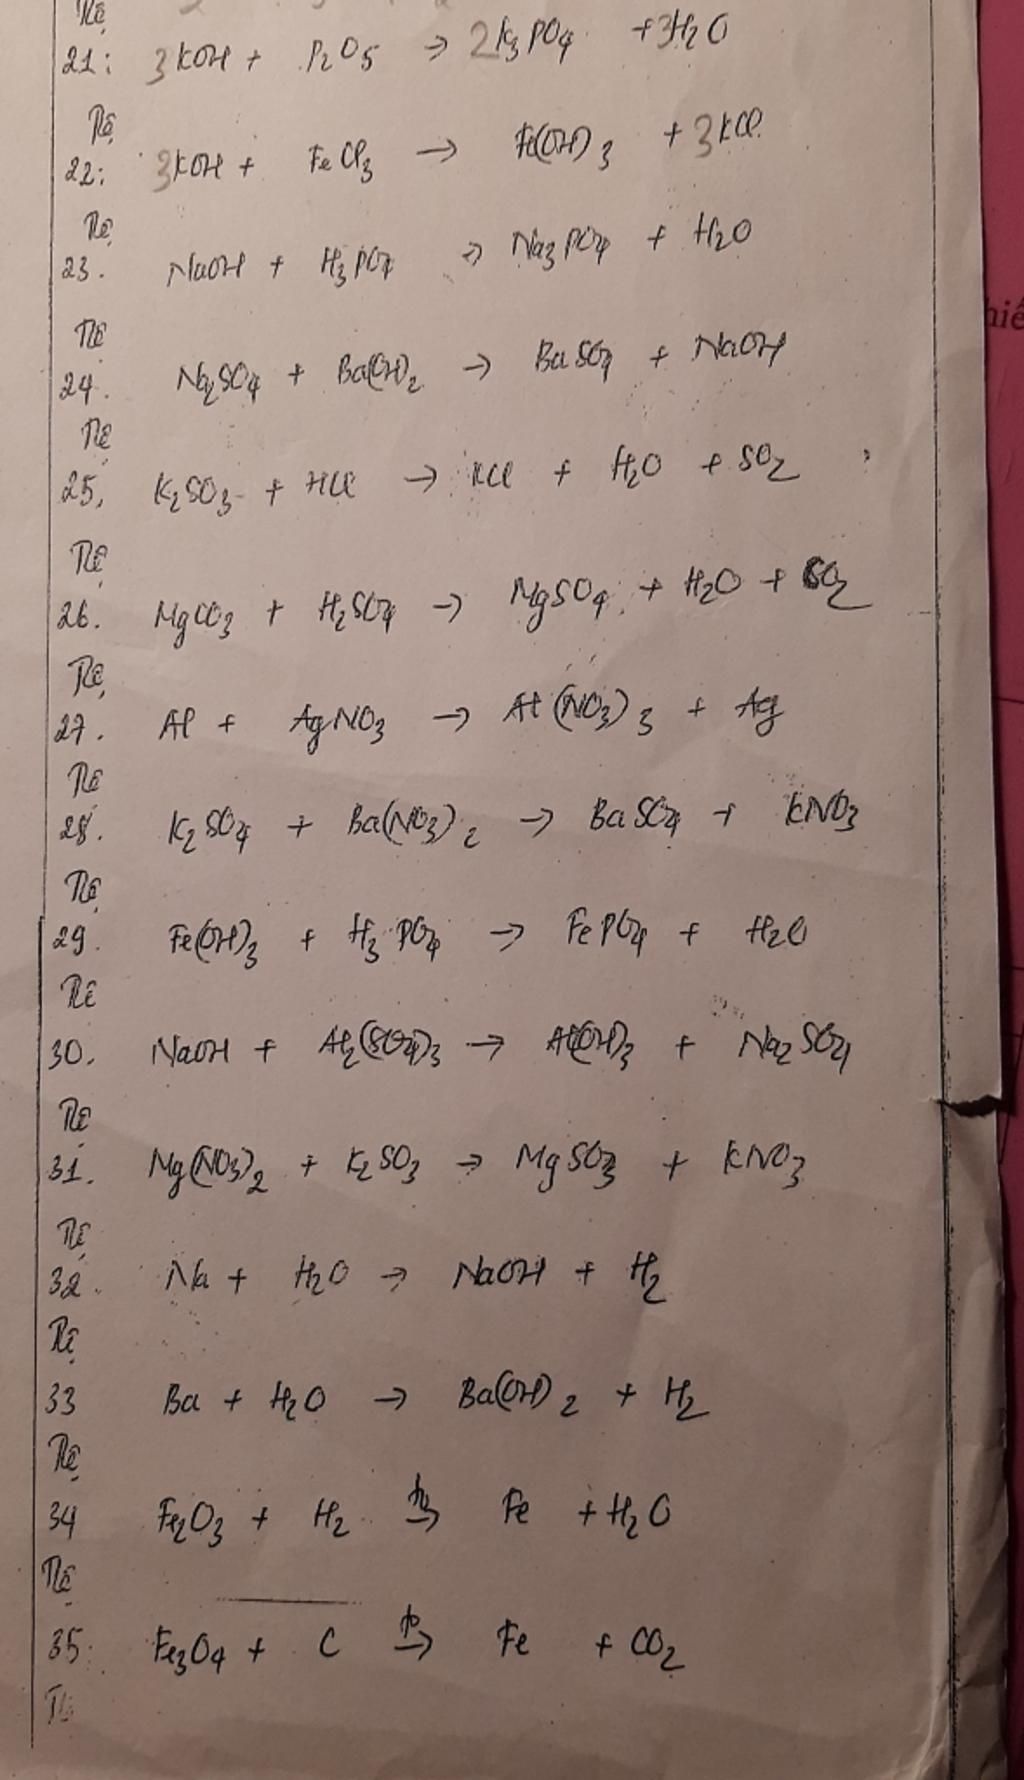 Tỉ lệ
21: 3KOH + P2O5 → 2K3PO4 + 3H2O
Tỉ lệ
22: 3KOH + FeCl3 → Fe(OH)3 + 3KCl
Tỉ lệ
23. NaOH + H3PO4 → Na3PO4 + H2O
Tỉ lệ
24. Na2SO4 + Ba(OH)2 → BaSO4 + NaOH
Tỉ lệ
25, K2SO3 + HCl → KCl + H2O + SO2
Tỉ lệ
26. MgCO3 + H2SO4 → MgSO4 + H2O + SO2
Tỉ lệ
27. Al + AgNO3 → Al(NO3)3 + Ag
Tỉ lệ
28. K2SO4 + Ba(NO3)2 → BaSO4 + KNO3
Tỉ lệ
29. Fe(OH)3 + H3PO4 → FePO4 + H2O
Tỉ lệ
30. NaOH + Al2(SO4)3 → Al(OH)3 + Na2SO4
Tỉ lệ
31. Mg(NO3)2 + K2SO3 → MgSO3 + KNO3
Tỉ lệ
32. Na + H2O → NaOH + H2
Tỉ lệ
33 Ba + H2O → Ba(OH)2 + H2
Tỉ lệ
34 Fe2O3 + H2 t°→ Fe + H2O
Tỉ lệ
35. Fe3O4 + C t°→ Fe + CO2